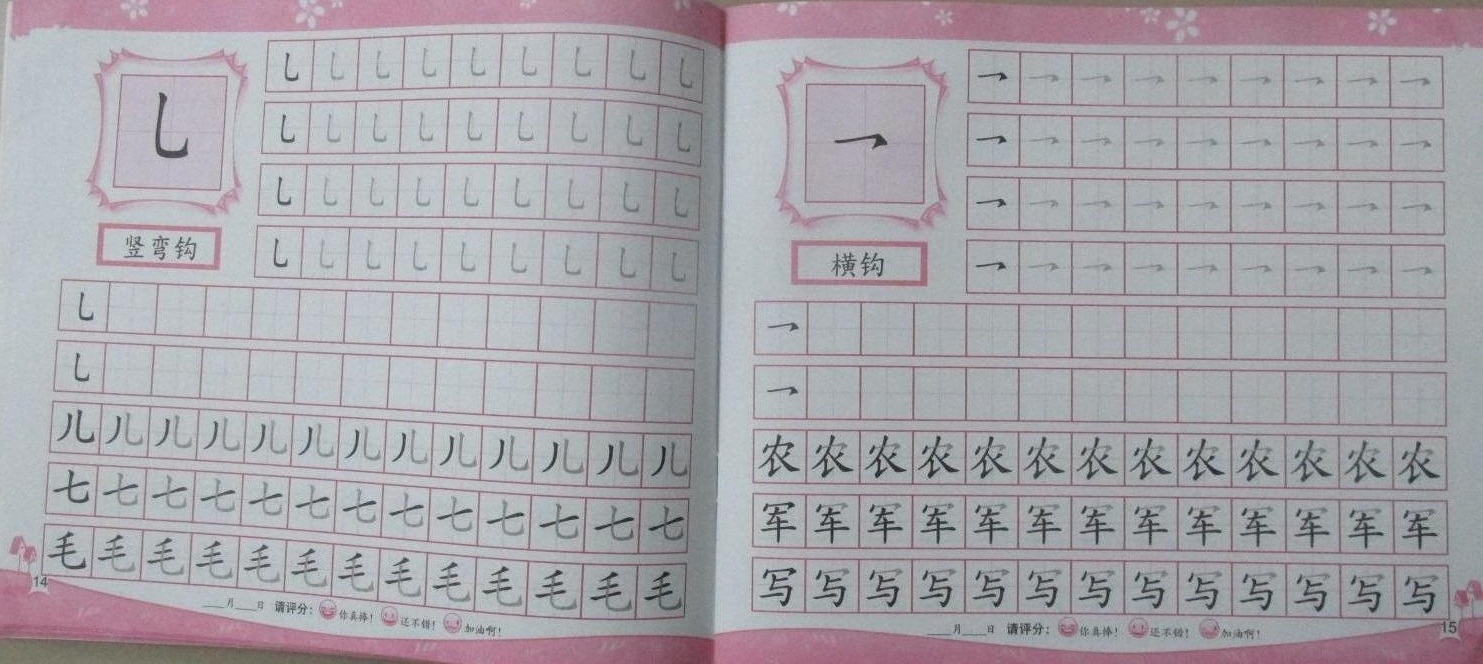 乚
乚乚乚乚乚乚乚乚乚
乚乚乚乚乚乚乚乚乚
乚乚乚乚乚乚乚乚乚
竖弯钩
乚乚乚乚乚乚乚乚乚
乚
乚
儿儿儿儿儿儿儿儿儿儿儿儿儿
七七七七七七七七七七七七七
毛毛毛毛毛毛毛毛毛毛毛毛毛
14
___月___日 请评分: 你真棒! 还不错! 加油啊!
乛
乛乛乛乛乛乛乛乛乛
乛乛乛乛乛乛乛乛乛
乛乛乛乛乛乛乛乛乛
横钩
乛乛乛乛乛乛乛乛乛
乛
乛
农农农农农农农农农农农农农
军军军军军军军军军军军军军
写写写写写写写写写写写写写
___月___日 请评分: 你真棒! 还不错! 加油啊!
15